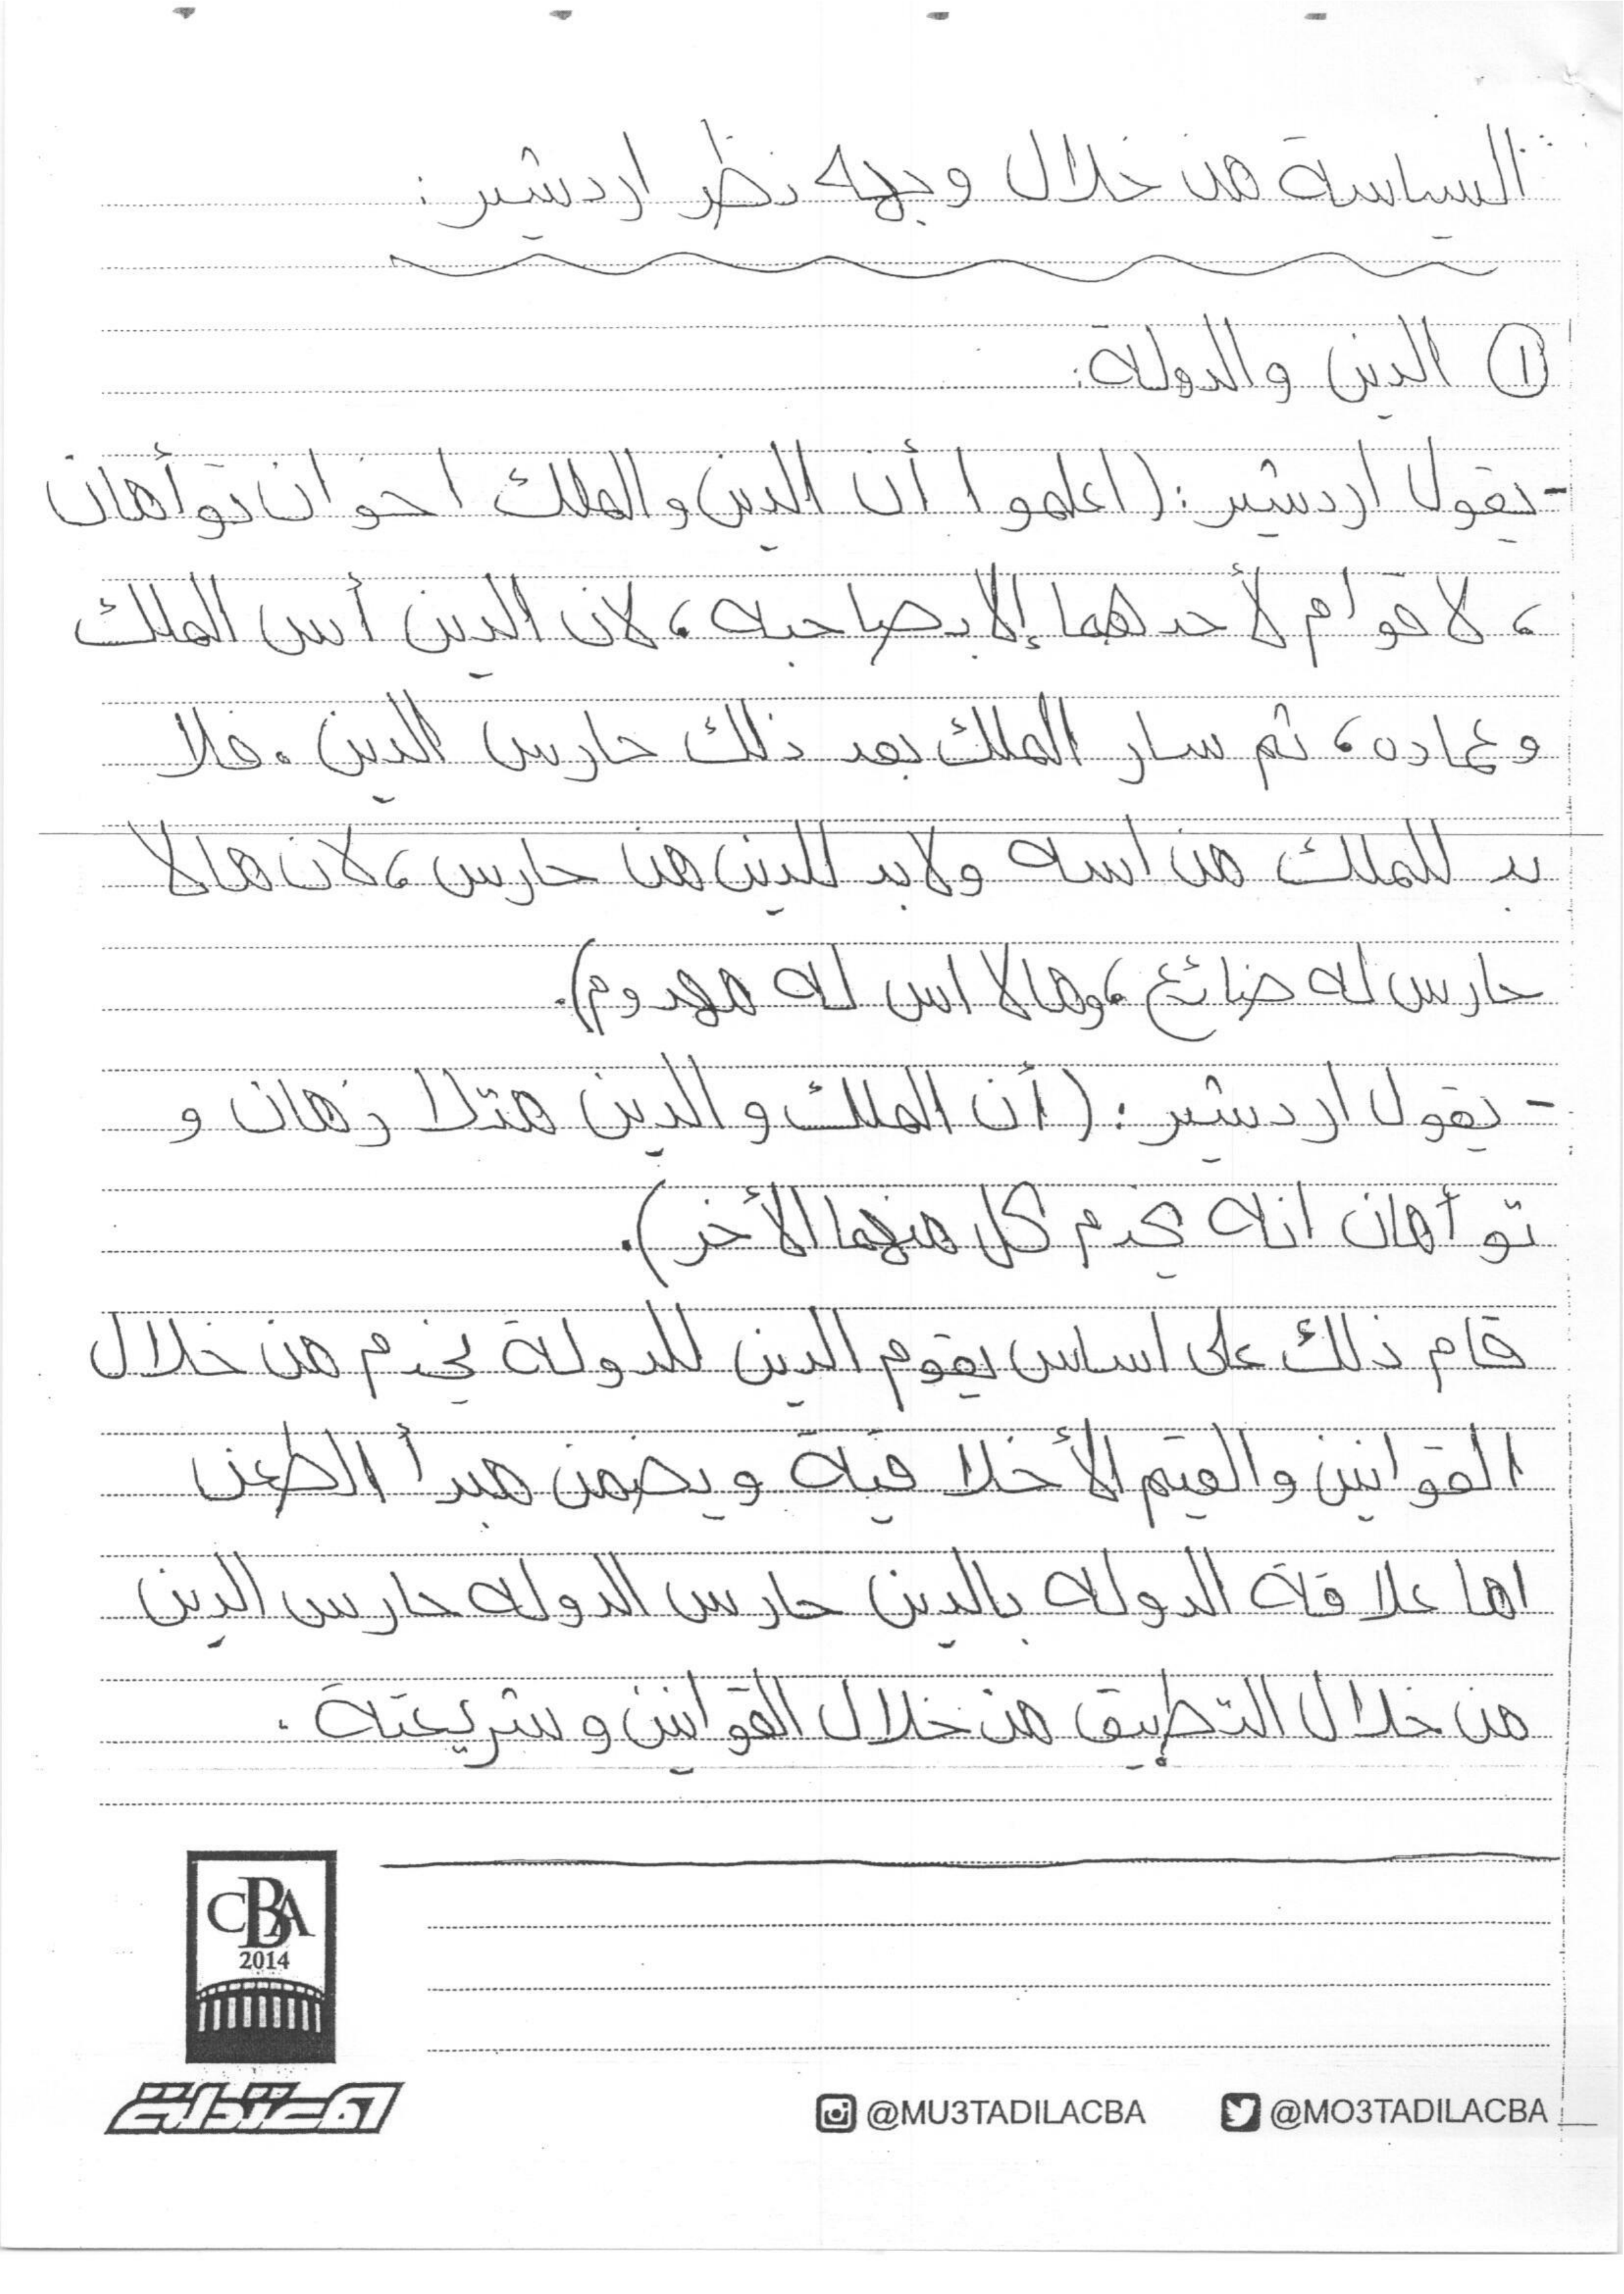 السياسة من خلال وجهه نظر اردشير:
① الدين والدولة:
- يقول اردشير: (اعلموا أن الدين والملك اخوان توأمان
، لا قوام لأحدهما إلا بصاحبه، لان الدين أس الملك
وعماده، ثم سار الملك بعد ذلك حارس الدين. فلا
بد للملك من اسه ولابد للدين من حارس، لان مالا
حارس له ضائع، ومالا اس له مهدوم).
- يقول اردشير: (أن الملك والدين متلازمان و
توأمان انه يخدم كل منهما الأخر).
قام ذلك على اساس يقوم الدين للدولة يخدم من خلال
القوانين والقيم الأخلاقية ويضمن مبدأ الطعن
اما علاقة الدوله بالدين حارس الدوله حارس الدين
من خلال التطبيق من خلال القوانين وشريعتة.
CBA
2014
المعتدلة
@MU3TADILACBA @MO3TADILACBA